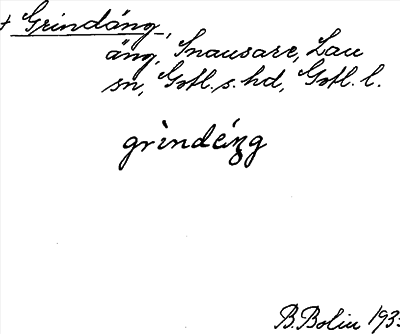 + Grindäng,
äng, Snausarve, Lau
sn, Gotl. s. hd, Gotl. l.
grìndéŋg
B. Bolin 193